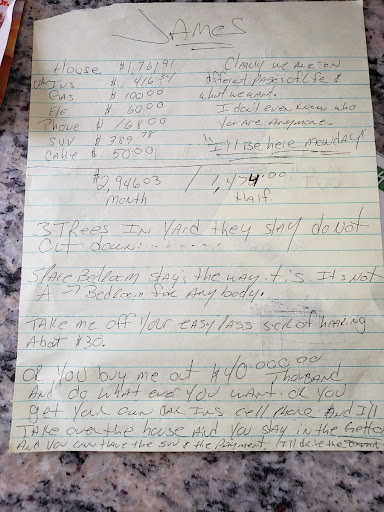 JAMES
House $1,761.91
Car INS $ 416.34
Gas $ 100.00
E/E $ 60.00
Phone $ 168.00
SUV $ 389.78
Cable $ 50.00
Clearly we are on
different pages of life &
what we want.
I don't even know who
you are anymore.
"I'll Be here monday"
$2,946.03 / 1,474.00
month Half.
3 TREES IN YARD they STAY do NOT
CUT down.......
SPARE Bedroom stays the way it is. It's NOT
A Bedroom for Any body.
TAKE me off your easy pass sick of hearing
About $30.
OR You buy me out $40,000.00
THOUSAND
And do what ever you want. OR you
get your own car INS cell phone And I'll
TAKE over the house And You stay in the Getto
And you can have the SUV & the payment I'll drive the